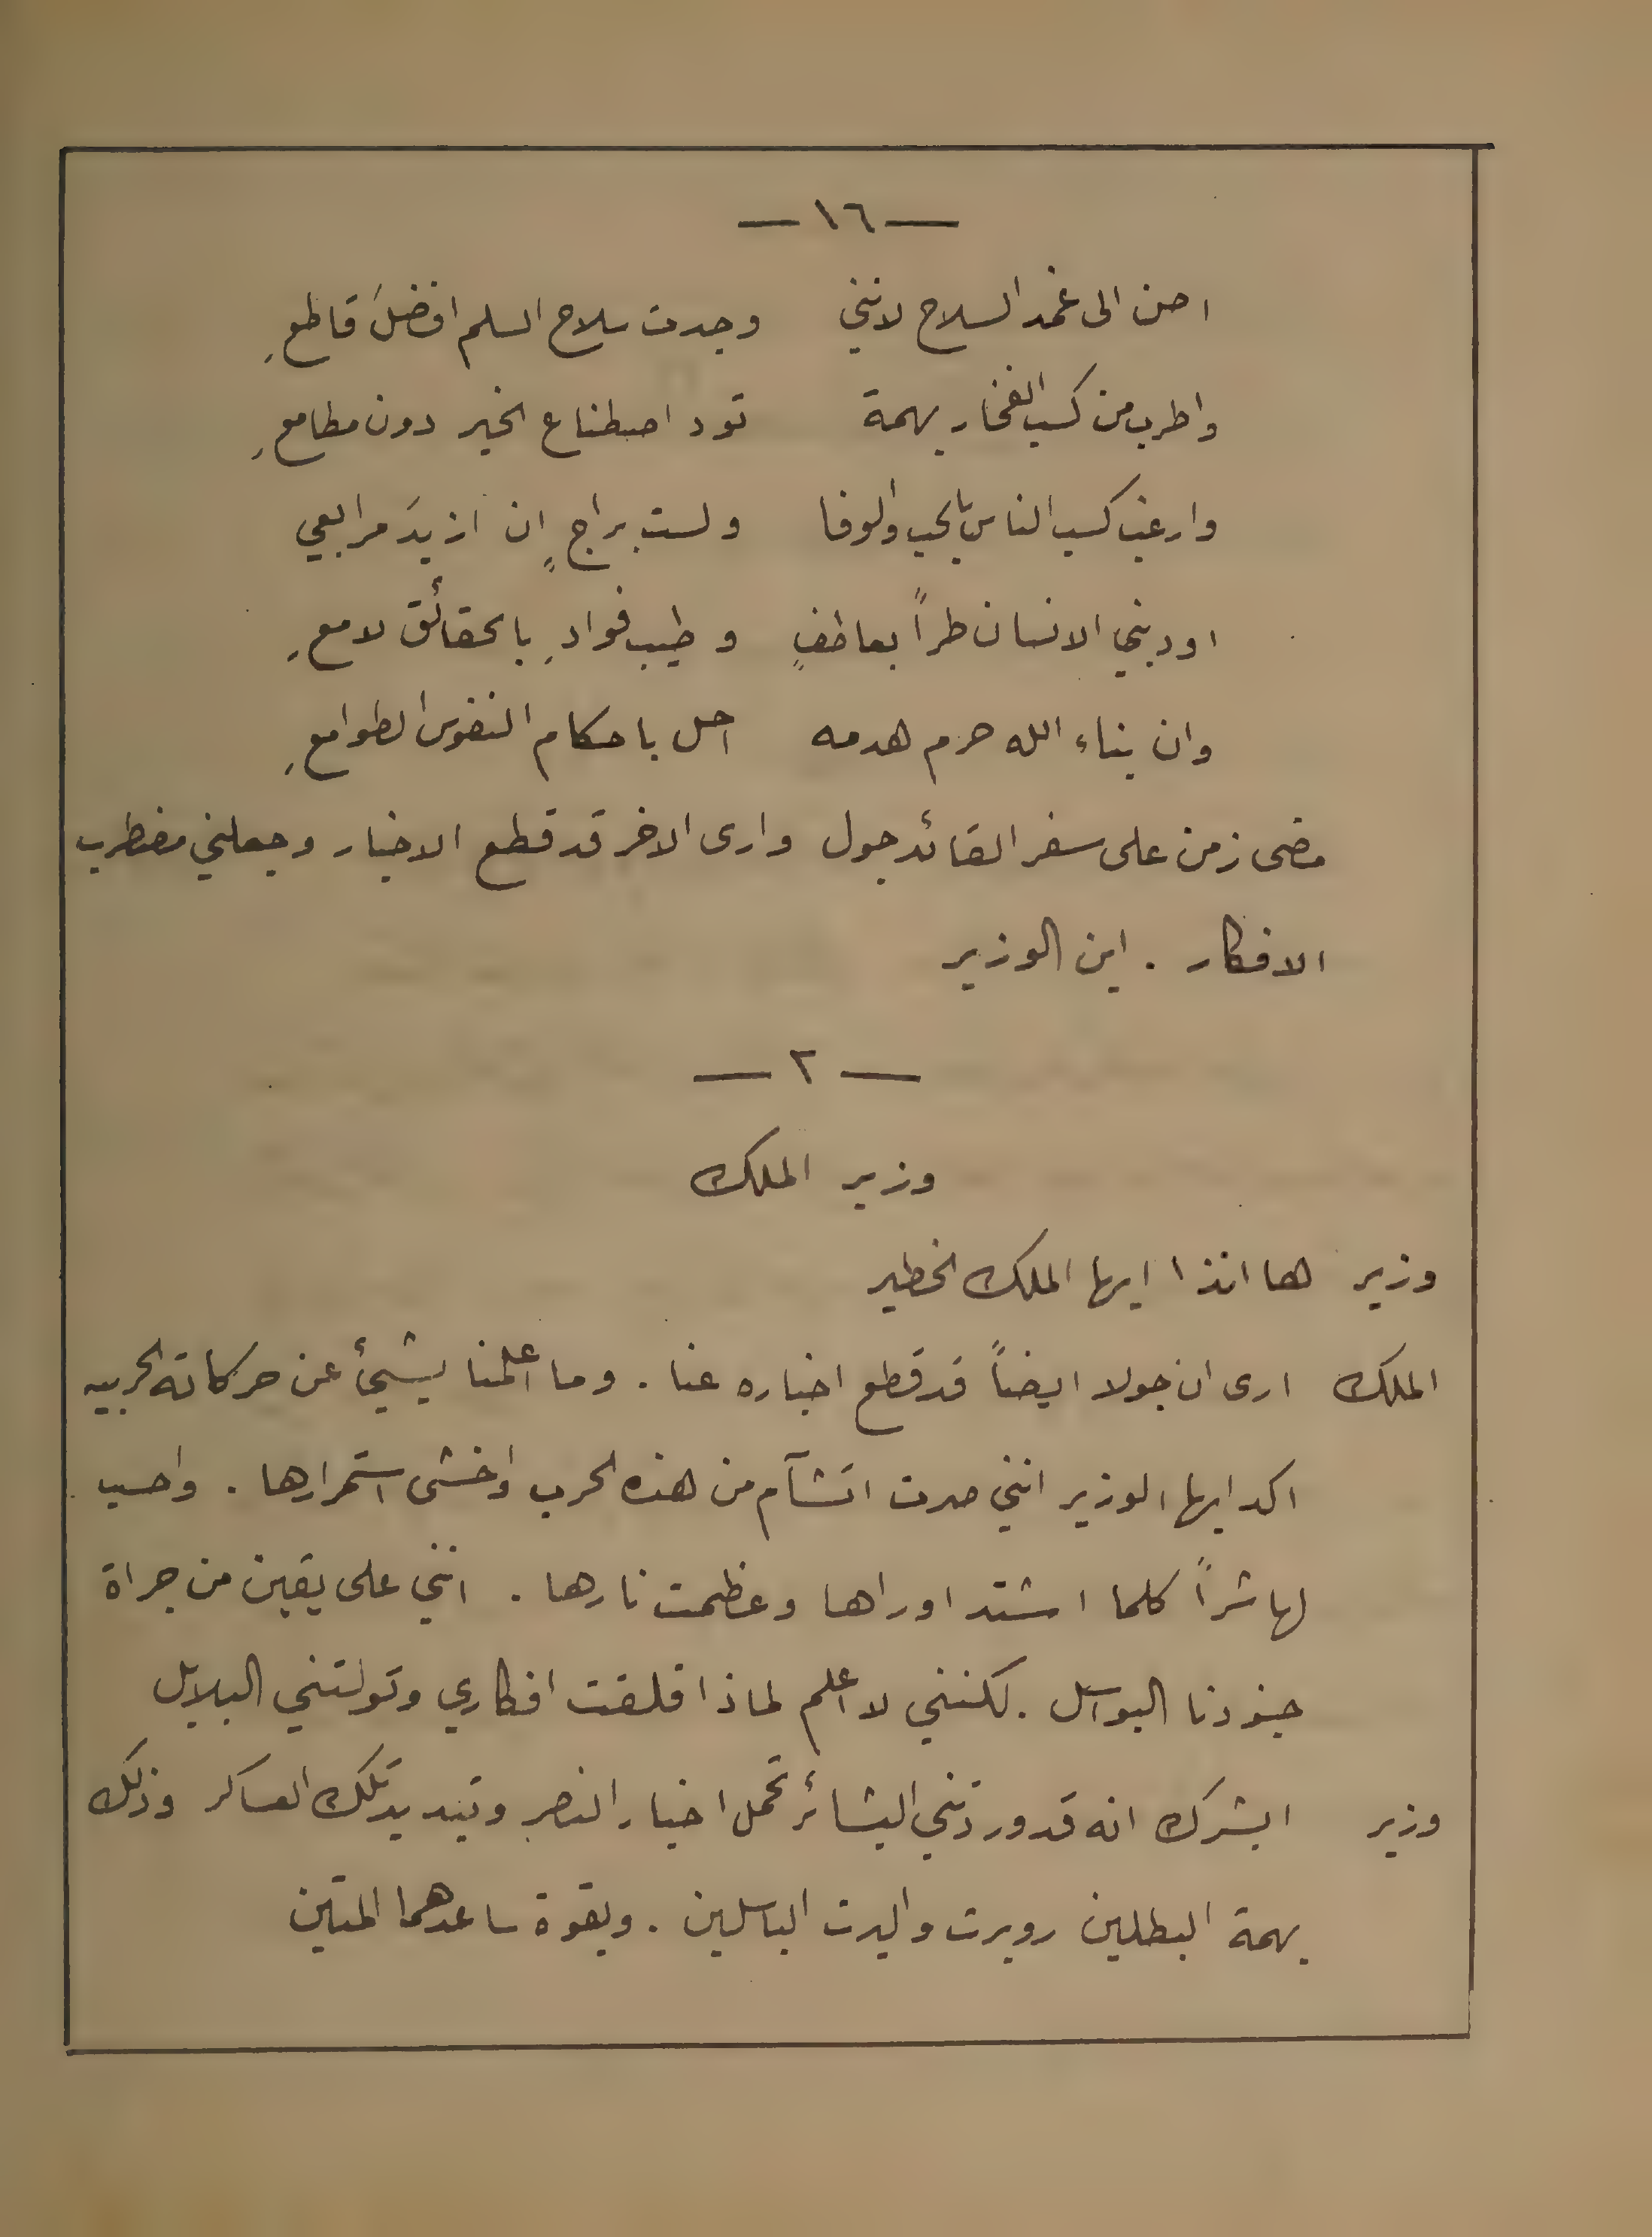 — ١٦ —
احن الى غمد السلاح لانني وجدت سلاح السلم افضلَ قاطعِ
واطرب من كسب الفخار بهمة تود اصطناع الخير دون مطامعِ
وارغب كسب الناس بالحب والوفا ولست براجٍ ان ازيدَ مرابعي
اود بني الانسان طراً بعاطفٍ وطيب فوادِ بالحقائق لامعِ
وان بناء الله حرم هدمه احل باحكام النفوس الطوامعِ
مضى زمن على سفر القائد جول وارى الاخر قد قطع الاخبار وجعلني مضطرب
الافكار . اين الوزير
— ٢ —
وزير الملك
وزير هاانذا ايها الملك الخطير
الملك ارى ان جولا ايضاً قد قطع اخباره عنا . وما اعلمنا بشيئ عن حركاته الحربيه
اكد ايها الوزير انني صرت اتشآم من هذه الحرب واخشى استمرارها . واحسب
لها شراً كلما اشتد اوراها وعظمت نارها . انني على يقين من جراة
جنودنا البواسل . لكنني لا اعلم لماذا قلقت افكاري وتولتني البلابل
وزير ابشرك انه قد وردتني البشائر تحمل اخبار النصر وتبديد تلك العساكر وذلك
بهمة البطلين روبرت والبرت الباسلين . وبقوة ساعدهما المتين